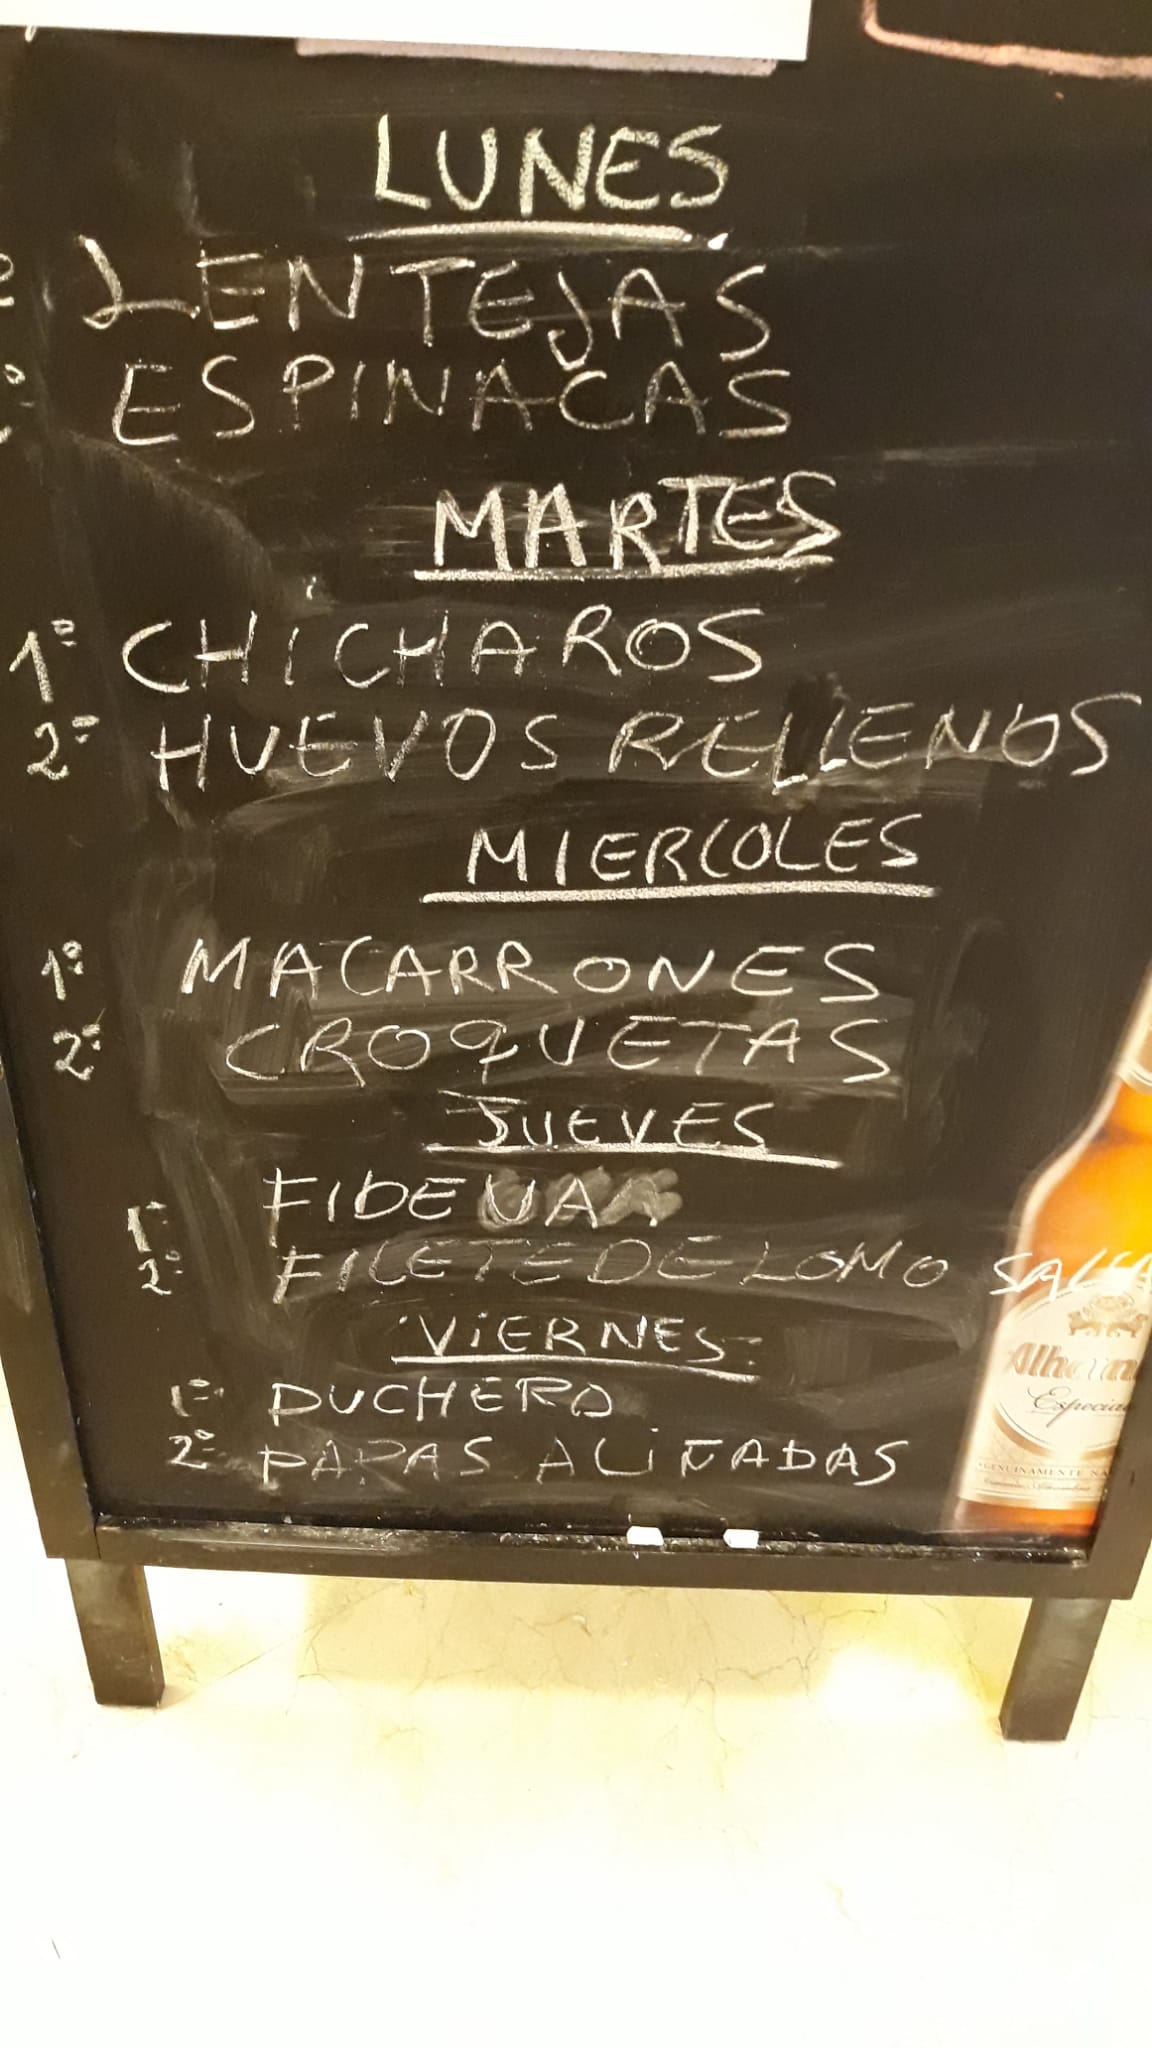 LUNES
LENTEJAS
ESPINACAS
MARTES
1º CHICHAROS
2º HUEVOS RELLENOS
MIERCOLES
1º MACARRONES
2º CROQUETAS
JUEVES
1º FIDEUAA
2º FILETE DE LOMO
VIERNES
1º PUCHERO
2º PAPAS ALIÑADAS
Especial
GENUINAMENTE